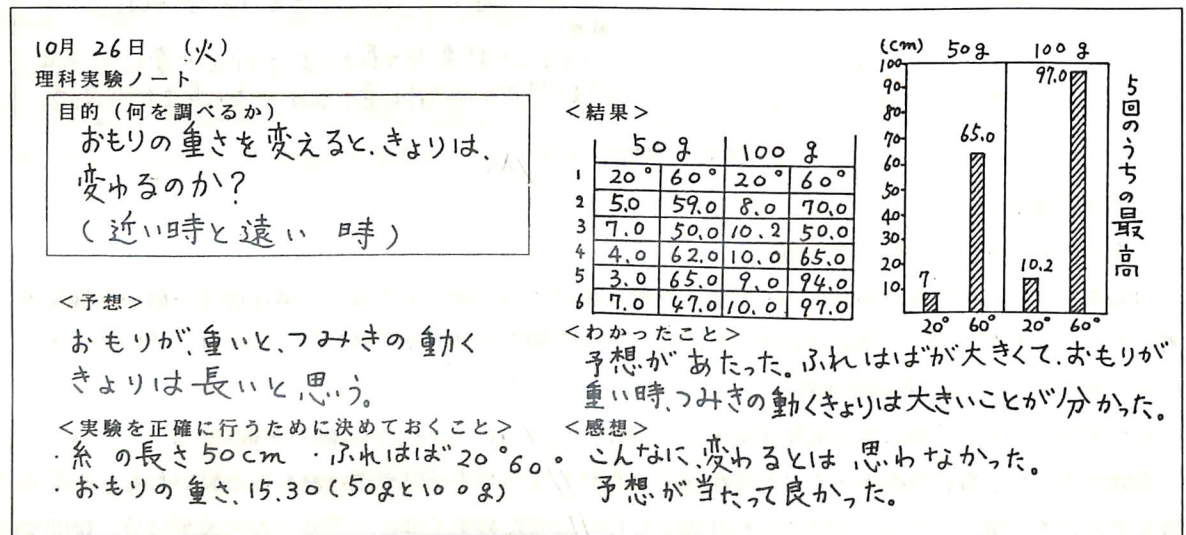 10月 26日 (火)
理科実験ノート
目的(何を調べるか)
おもりの重さを変えると、きょりは、
変わるのか?
(近い時と遠い 時)
<予想>
おもりが、重いと、つみきの動く
きょりは長いと思う。
<実験を正確に行うために決めておくこと>
・糸 の長さ50cm ・ふれはば20°60°
・おもりの重さ、15.30(50gと100g)
<結果>
50g 100g
1 20° 60° 20° 60°
2 5.0 59.0 8.0 70.0
3 7.0 50.0 10.2 50.0
4 4.0 62.0 10.0 65.0
5 3.0 65.0 9.0 94.0
6 7.0 47.0 10.0 97.0
(cm) 50g 100g
100
90
80
70
60
50
40
30
20
10
7 65.0 10.2 97.0
20° 60° 20° 60°
5回のうちの最高
<わかったこと>
予想があたった。ふれはばが大きくて、おもりが
重い時、つみきの動くきょりは大きいことが分かった。
<感想>
こんなに、変わるとは 思わなかった。
予想が当たって良かった。